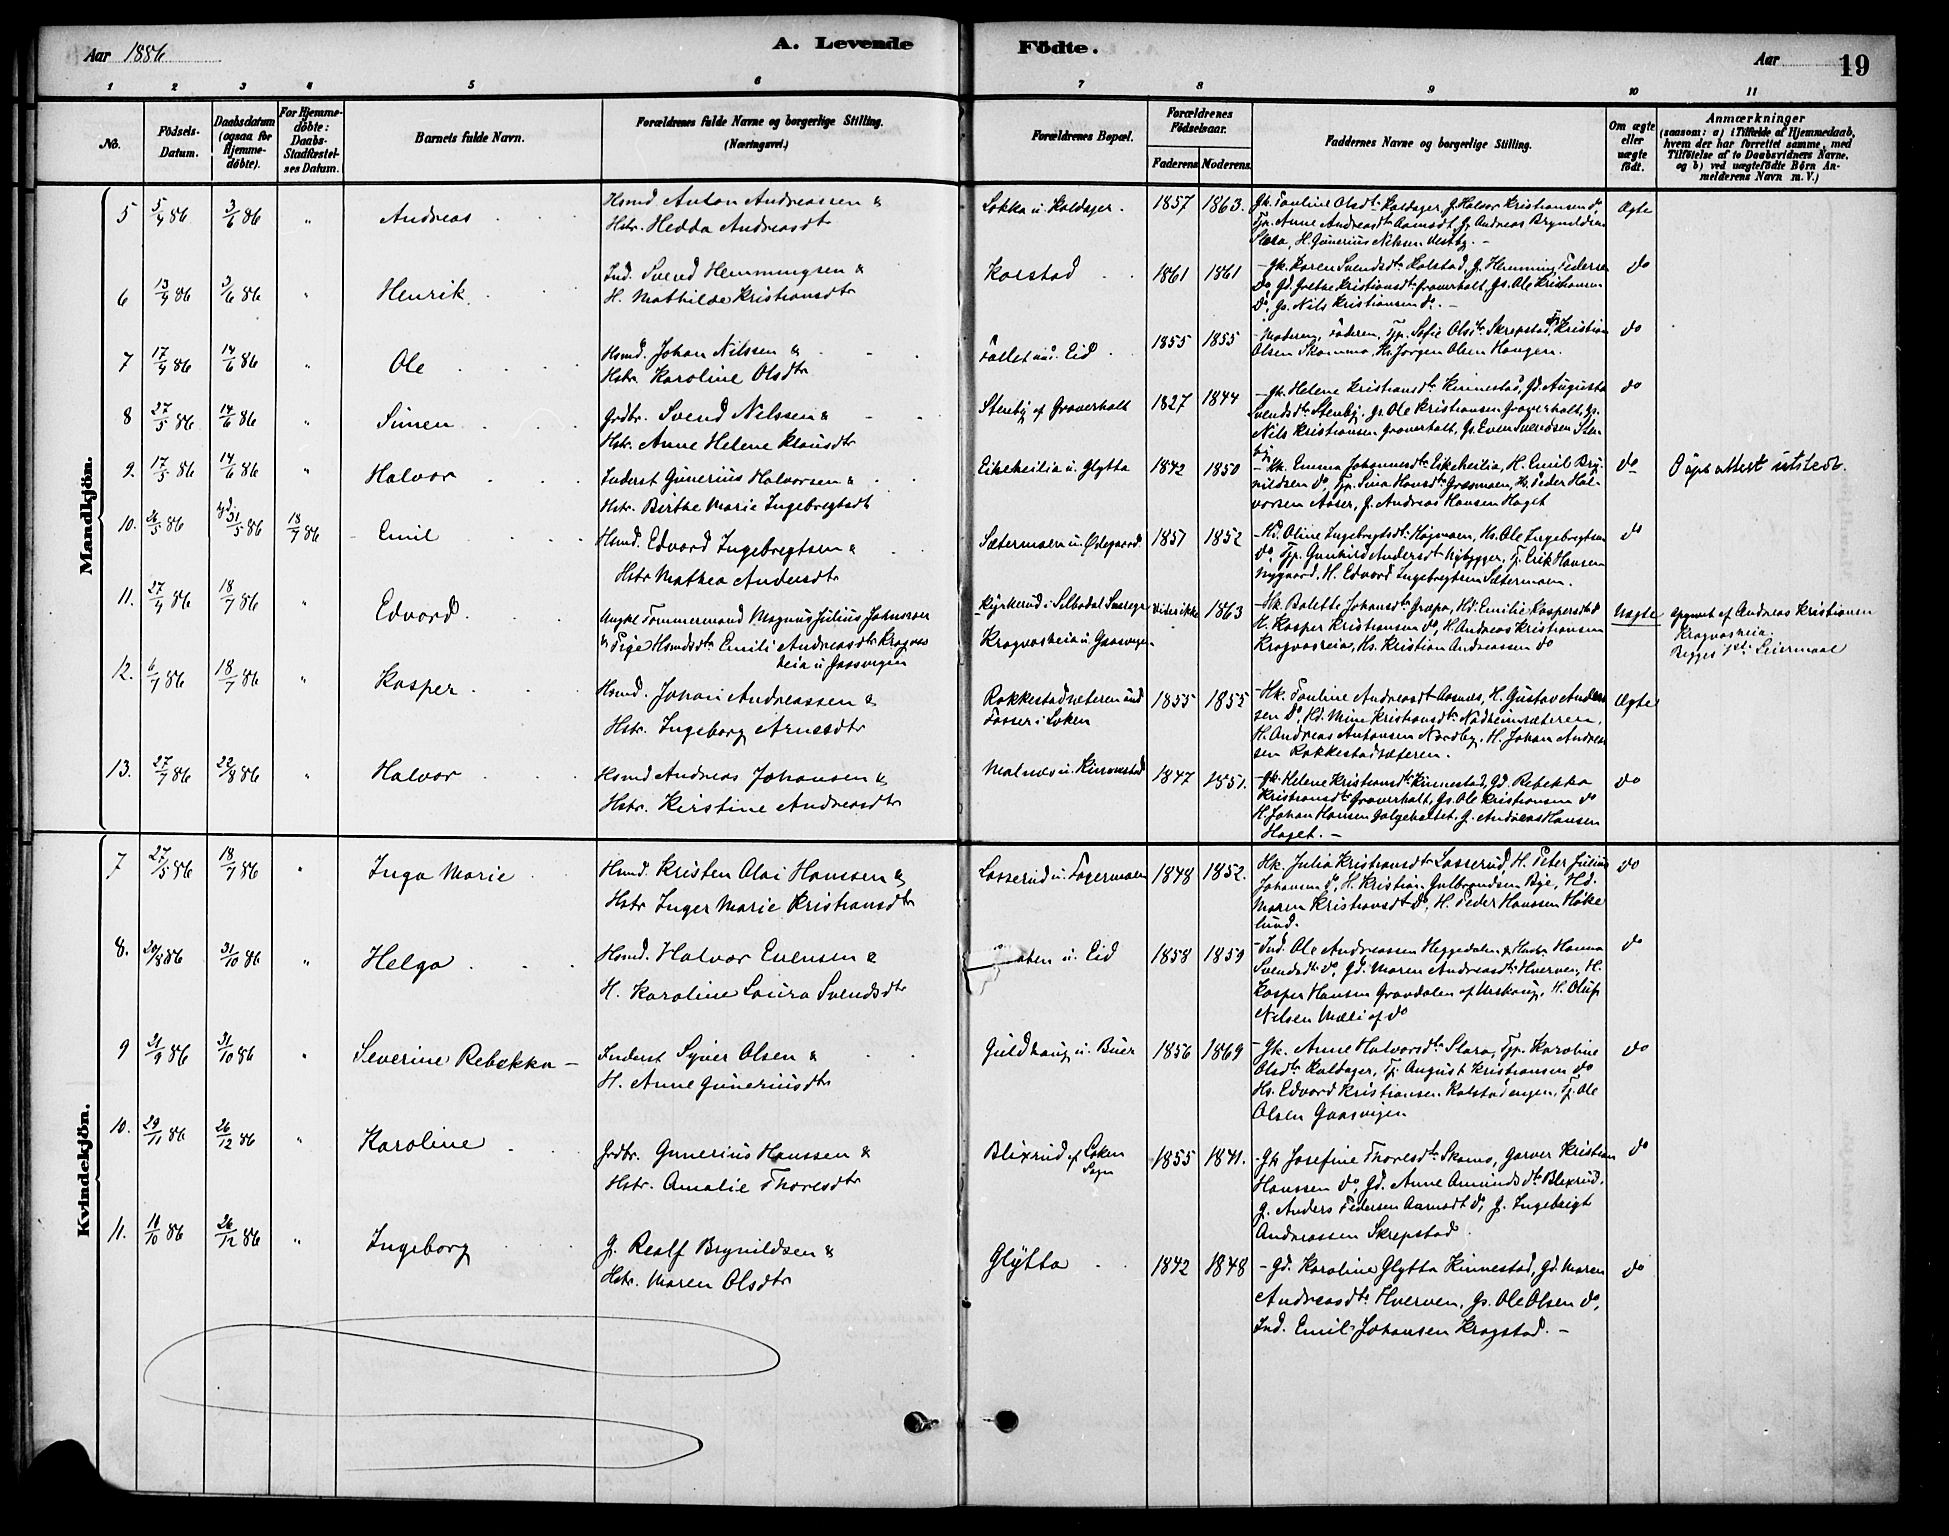 Aar 1886
A. Levende
Födte.
Aar 19
1 2 3 4 5 6 7 8 9 10 11
No.
Födsels-Datum.
Daabsdatum (ogsaa for Hjemmedöbte).
For Hjemmedöbte: Daabs-Stadfæstelses Datum.
Barnets fulde Navn.
Forældrenes fulde Navne og borgerlige Stilling.
(Næringsvei.)
Forældrenes Bopæl.
Forældrenes Födselsaar.
Faderens. Moderens.
Faddernes Navne og borgerlige Stilling.
Om ægte eller uægte födt.
Anmærkninger
(saasom: a) i Tilfælde af Hjemmedaab, hvem der har forrettet samme, med Tilföielse af to Daabsvidners Navne. og b) ved uægtefödte Börn Anmelderens Navn m. V.)
Mandkjön.
5 5/4 86 3/6 86 " Andreas
Hsmd Anton Andreassen &
Hstr. Hedda Andreasdtr
Lokka u. Kaldager. 1857 1863.
Gk. Pauline Olsdtr Kaldager, G. Halvor Kristiansen do,
Tp. Anne Andreasdtr Aamodt, G. Andreas Brynildsen
Slora, H. Gunerius Nilsen Vestby. -
Ægte
6 13/4 86 3/6 86 " Henrik
Ind. Svend Hemmingsen &
H. Mathilde Kristiansdtr
Kolstad 1861 1861
- Gk. Karen Svendsdtr Kolstad, G. Hemming Pedersen
do, Gd. Grethe Kristiansdtr Graverholt, Gs. Ole Kristiansen
do, Gs. Nils Kristiansen do. -
do
7 17/4 86 14/6 86 " Ole
Hsmd. Johan Nilssen &
Hstr. Karoline Olsdtr
Eid 1855 1855
- Moderen, Faderen, Tp. Sofie Olsdtr Skrepstad, Kristian
Olsen Skamma, Hs. Jørgen Olsen Haugen.
do
8 27/5 86 14/6 86 " Simen
Grdbr. Svend Nilssen &
Hstr. Anne Helene Klausdtr
Stenby af Graverholt 1827 1844
- Gk. Helene Kristiansdtr Kinnestad, Gd. Augusta
Svendsdtr Stenby, Gs. Ole Kristiansen Graverholt, Gs.
Nils Kristiansen Graverholt, Gs. Even Svendsen Sten-
by
do
9. 17/5 86 14/6 86 " Halvor
Inderst Gunerius Halvorsen &
Hstr. Birthe Marie Ingebregtsdtr
Eikeheilia u. Glytta 1842 1850
- Hk. Emma Johannesdtr Eikeheilia, H. Emil Bry-
nildsen do, Tp. Sina Hansdtr Græsmoen, Hs. Peder Hal-
vorsen Aaser, G. Andreas Hansen Haget
do
Dåpsattest utstedt.
10. 26/5 86 31/5 86 18/7 86 Emil
Hsmd. Edvard Ingebregtsen &
Hstr Mathea Andersdtr
Sætermoen u. Ødegaard 1857 1852
- Hd. Oline Ingebregtsdtr Høgmoen, Hs. Ole Ingebregtsen
do, Tp. Gunhild Andersdtr Nybygget, T. Erik Hansen
Nygaard, H. Edvard Ingebregtsen Sætermoen.
do
11. 27/4 86 18/7 86 " Edvard
Ungkl Tømmermand Magnus Julius Johnsson
& Pige Hsmdsdtr Emili Andreasdtr Kragvas
heia u Gaasvigen
Kyrkerud i Silbodal Sverge
Kragvasheia u. Gaasvigen
vides ikke 1863
- Hk. Balette Johansdtr Græpa, Hd. Emilie Kaspersdtr do
H. Kasper Kristiansen do, H. Andreas Kristiansen
Kragvasheia, Hs. Kristian Andreassen do
Uægte
Opgivet af Andreas Kristiansen
Kragvasheia.
Begges 1ste Leiermaal
12. 6/7 86 18/7 86 " Kasper
Hsmd. Johan Andreassen &
Hstr. Ingeborg Arnesdtr
Rakkestadsæteren und
Fosser i Løken 1855 1855
- Hk. Pauline Andreasdtr Aasnes, H. Gustav Andreas-
sen do, Hd. Mine Kristiansdtr Nadheimsæteren,
H. Andreas Antonsen Nordby, H. Johan Andreas-
sen Rakkestadsæteren.
Ægte
13. 27/7 86 22/8 86 " Halvor
Hsmd Andreas Johansen &
Hstr. Kirstine Andreasdtr
Malnes u. Kinnestad 1847 1851.
- Gk. Helene Kristiansdtr Kinnestad, Gd. Rebekka
Kristiansdtr Graverholt, Gs. Ole Kristiansen do
H. Johan Hansen Galgeholtet, G. Andreas Hansen
Haget. -
do
Kvindekjön.
7 27/5 86 18/7 86 " Inga Marie
Hsmd. Kristen Olai Hanssen &
Hstr Inger Marie Kristiansdtr
Lasserud u. Fagermoen 1848 1852.
Hk. Julia Kristiansdtr Lasserud, H. Peter Julius
Johansen do, H. Kristian Gulbrandsen Bye, Hd.
Maren Kristiansdtr do, H. Peder Hanssen Høke
lund.
do
8. 20/8 86 31/10 86 " Helga
Hsmd. Halvor Evensen &
H. Karoline Laura Svendsdtr
aten u. Eid 1858 1859
- Ind. Ole Andreassen Heggedalen & Hustr. Hanna
Svendsdtr do, Gd. Maren Andreasdtr Hverven, H.
Kasper Hansen Gravdalen af Urskoug, H. Oluf
Nilsen Mæli af do
do
9 21/9 86 31/10 86 " Severine Rebekka -
Inderst Syver Olsen &
H. Anne Guneriusdtr
Guldhaug u. Buer 1856 1869
- Gk. Anne Halvorsdtr Slora, Tp. Karoline
Olsdtr Kaldager, Tj. August Kristiansen do
Hs. Edvard Kristiansen Kolstadengen, Tj. Ole
Olsen Gaasvigen
do
10. 29/11 86 26/12 86 " Karoline
Grdbr. Gunerius Hanssen &
Hstr. Amalie Thoresdtr
Blixrud af Løken
Sogn 1855 1841.
- Gk Josefine Thoresdtr Skamo, Garver Kristian
Hanssen do, Gd. Anne Amundsdtr Blixrud,
G. Anders Pedersen Aamodt do, G. Ingebrigt
Andreassen Skrepstad.
do
11. 10/10 86 26/12 86 " Ingeborg
G. Realf Brynildsen &
Hstr. Maren Olsdtr
Glytta 1842 1848
- Gd. Karoline Glytta Kinnestad, Gd. Maren
Andreasdtr Hverven, Gs. Ole Olsen do,
Ind. Emil Johansen Kragstad. -
do